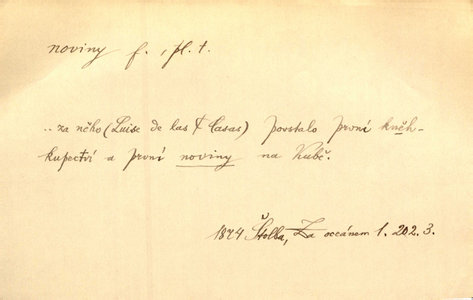 noviny f., pl. t.
.. za něho (Luise de las Casas) povstalo první kněh-
kupectví a první noviny na Kubě.
1874 Štolba, Za oceánem 1. 202. 3.